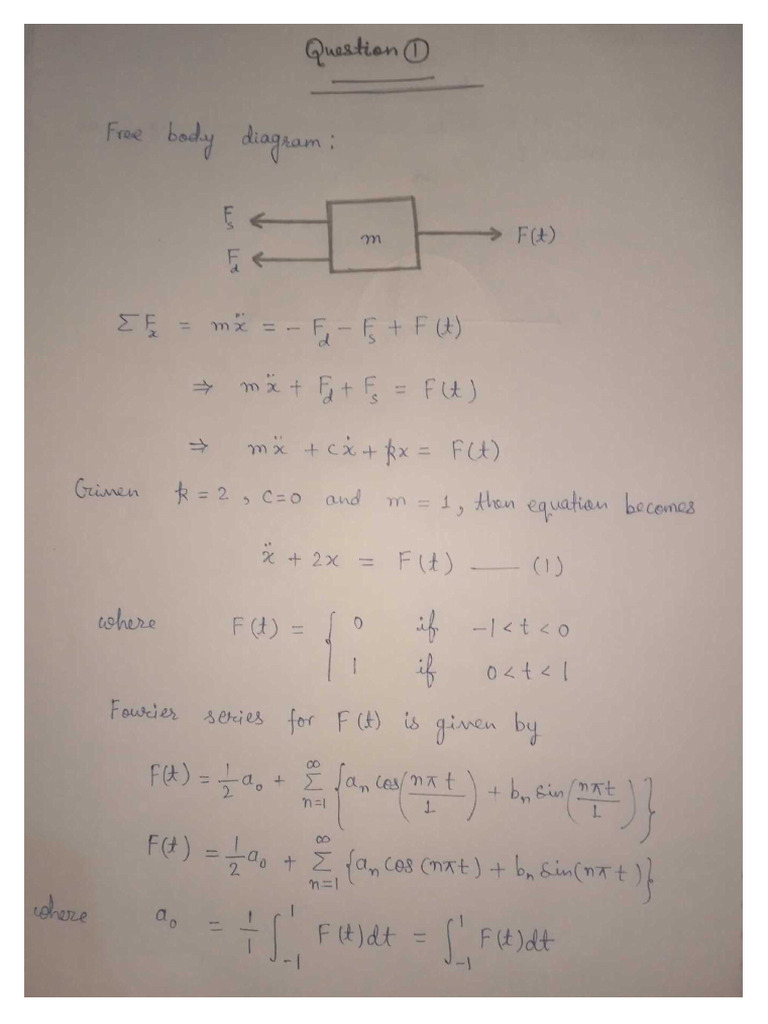 Question ①
Free body diagram:
F_s
m
F(t)
F_d
ΣF_x = mẍ = - F_d - F_s + F(t)
⇒ mẍ + F_d + F_s = F(t)
⇒ mẍ + cẋ + kx = F(t)
Given k = 2, C=0 and m = 1, then equation becomes
ẍ + 2x = F(t) —— (1)
where F(t) = { 0 if -1<t<0
1 if 0<t<1
Fourier series for F(t) is given by
F(t) = 1/2 a₀ + Σ_{n=1}^{∞} {aₙ cos(nπt/1) + bₙ sin(nπt/1)}
F(t) = 1/2 a₀ + Σ_{n=1}^{∞} {aₙ cos(nπt) + bₙ sin(nπt)}
where a₀ = 1/1 ∫_{-1}^{1} F(t)dt = ∫_{-1}^{1} F(t)dt